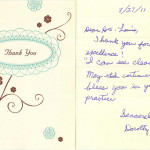 Thank You
2/27/11
Dear Dr. Louie,
Thank you for
excellence!
I can see clear
May God continue
bless you in you
practice
Sincerel
Dorothy